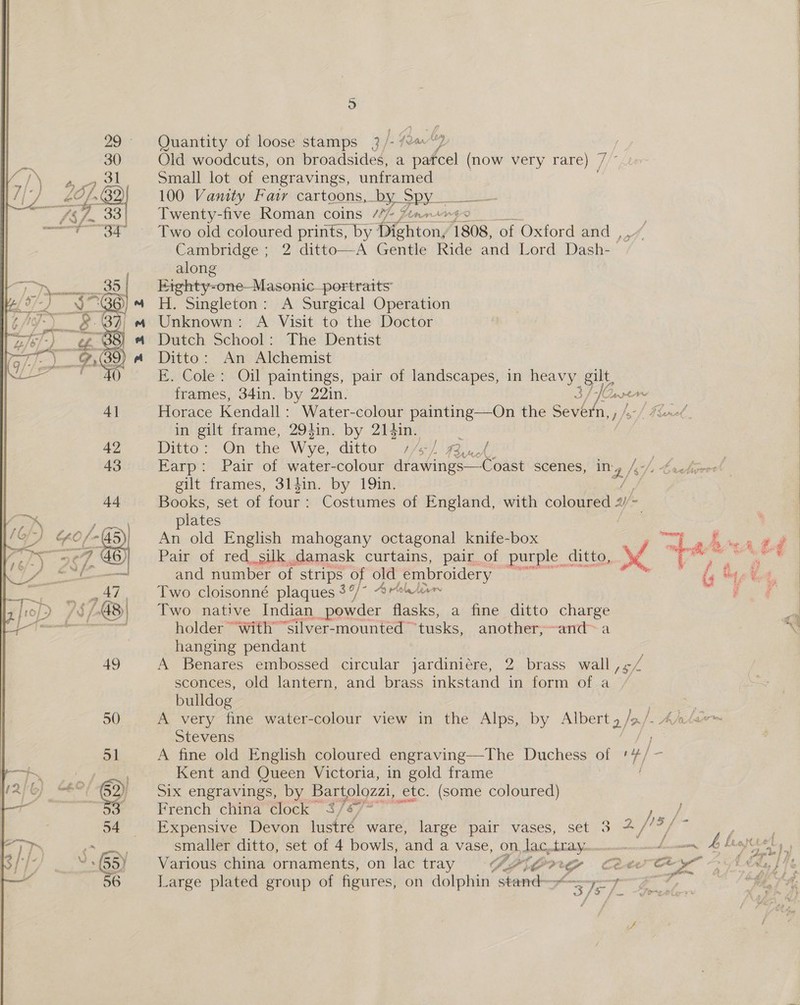 5
29 Quantity of loose stamps 3/-
30 Old woodcuts, on broadsides, a parcel (now very rare) 7/-
31 Small lot of engravings, unframed
7/-) 20/- 32 100 Vanity Fair cartoons, by Spy
15/- 33 Twenty-five Roman coins
34 Two old coloured prints, by Dighton, 1808, of Oxford and
Cambridge ; 2 ditto—A Gentle Ride and Lord Dash-
along
35 Eighty-one Masonic portraits
36 H. Singleton : A Surgical Operation
37 Unknown : A Visit to the Doctor
38 Dutch School : The Dentist
39 Ditto : An Alchemist
40 E. Cole : Oil paintings, pair of landscapes, in heavy gilt
frames, 34in. by 22in.
41 Horace Kendall : Water-colour painting—On the Severn,
in gilt frame, 29½in. by 21½in.
42 Ditto : On the Wye, ditto
43 Earp : Pair of water-colour drawings—Coast scenes, in
gilt frames, 31½in. by 19in.
44 Books, set of four : Costumes of England, with coloured 2/-
plates
40/- 45 An old English mahogany octagonal knife-box
46 Pair of red silk damask curtains, pair of purple ditto,
and number of strips of old embroidery
47 Two cloisonné plaques 3/-
48 Two native Indian powder flasks, a fine ditto charge
holder with silver-mounted tusks, another, and a
hanging pendant
49 A Benares embossed circular jardinière, 2 brass wall
sconces, old lantern, and brass inkstand in form of a
bulldog
50 A very fine water-colour view in the Alps, by Albert
Stevens
51 A fine old English coloured engraving—The Duchess of
Kent and Queen Victoria, in gold frame
52 Six engravings, by Bartolozzi, etc. (some coloured)
53 French china clock
54 Expensive Devon lustré ware, large pair vases, set 3
smaller ditto, set of 4 bowls, and a vase, on lac tray
55 Various china ornaments, on lac tray
56 Large plated group of figures, on dolphin stand